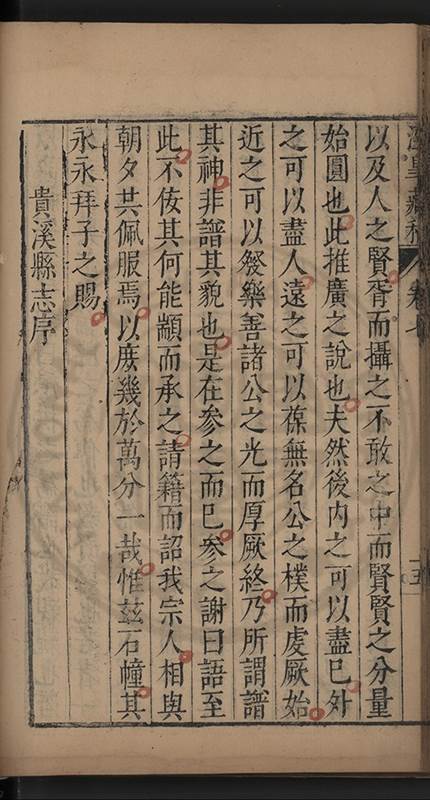 以及人之賢胥而攝之不敢之中而賢賢之分量
始圓也此推廣之說也夫然後內之可以盡巳外
之可以盡人遠之可以葆無名公之樸而虔厥始
近之可以發樂善諸公之光而厚厥終乃所謂譜
其神非譜其貌也是在参之而巳参之謝曰語至
此不佞其何能顓而承之請籍而詔我宗人相與
朝夕共佩服焉以庶幾於萬分一哉惟茲石幢其
永永拜子之賜
貴溪縣志序